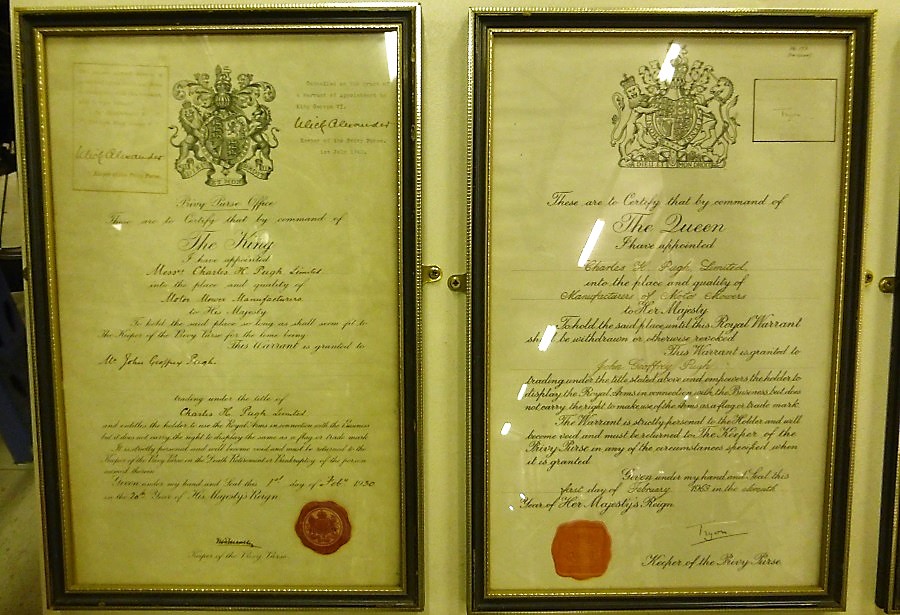 Ulick Alexander
Cancelled on the grant of
a Warrant of Appointment to
King George VI.
Ulick Alexander
Keeper of the Privy Purse.
1st July
ET MON
Privy Purse Office
These are to Certify that by command of
The King
I have appointed
Messrs Charles H. Pugh Limited
into the place and quality of
Motor Mower Manufacturers
to His Majesty
To hold the said place so long as shall seem fit to
The Keeper of the Privy Purse for the time being
This Warrant is granted to
Mr John Geoffrey Pugh.
trading under the title of
Charles H. Pugh Limited
and entitles the holder to use the Royal Arms in connection with the Business
but it does not carry the right to display the same as a flag or trade mark
It is strictly personal and will become void and must be returned to the
Keeper of the Privy Purse in the Death Retirement or Bankruptcy of the person
named therein
Given under my hand and Seal this 1st day of Feby 1930
in the 20th Year of His Majesty's Reign.
Keeper of the Privy Purse.
DIEU ET MON DROIT
Tryon
These are to Certify that by command of
The Queen
I have appointed
Charles H. Pugh Limited
into the place and quality of
Manufacturers of Motor Mowers
to Her Majesty
To hold the said place until this Royal Warrant
shall be withdrawn or otherwise revoked
This Warrant is granted to
John Geoffrey Pugh
trading under the title stated above and empowers the holder to
display the Royal Arms in connection with the Business but does
not carry the right to make use of the Arms as a flag or trade mark.
The Warrant is strictly personal to the Holder and will
become void and must be returned to The Keeper of the
Privy Purse in any of the circumstances specified when
it is granted
Given under my hand and Seal this
first day of February 1963 in the eleventh
Year of Her Majesty's Reign
Tryon
Keeper of the Privy Purse